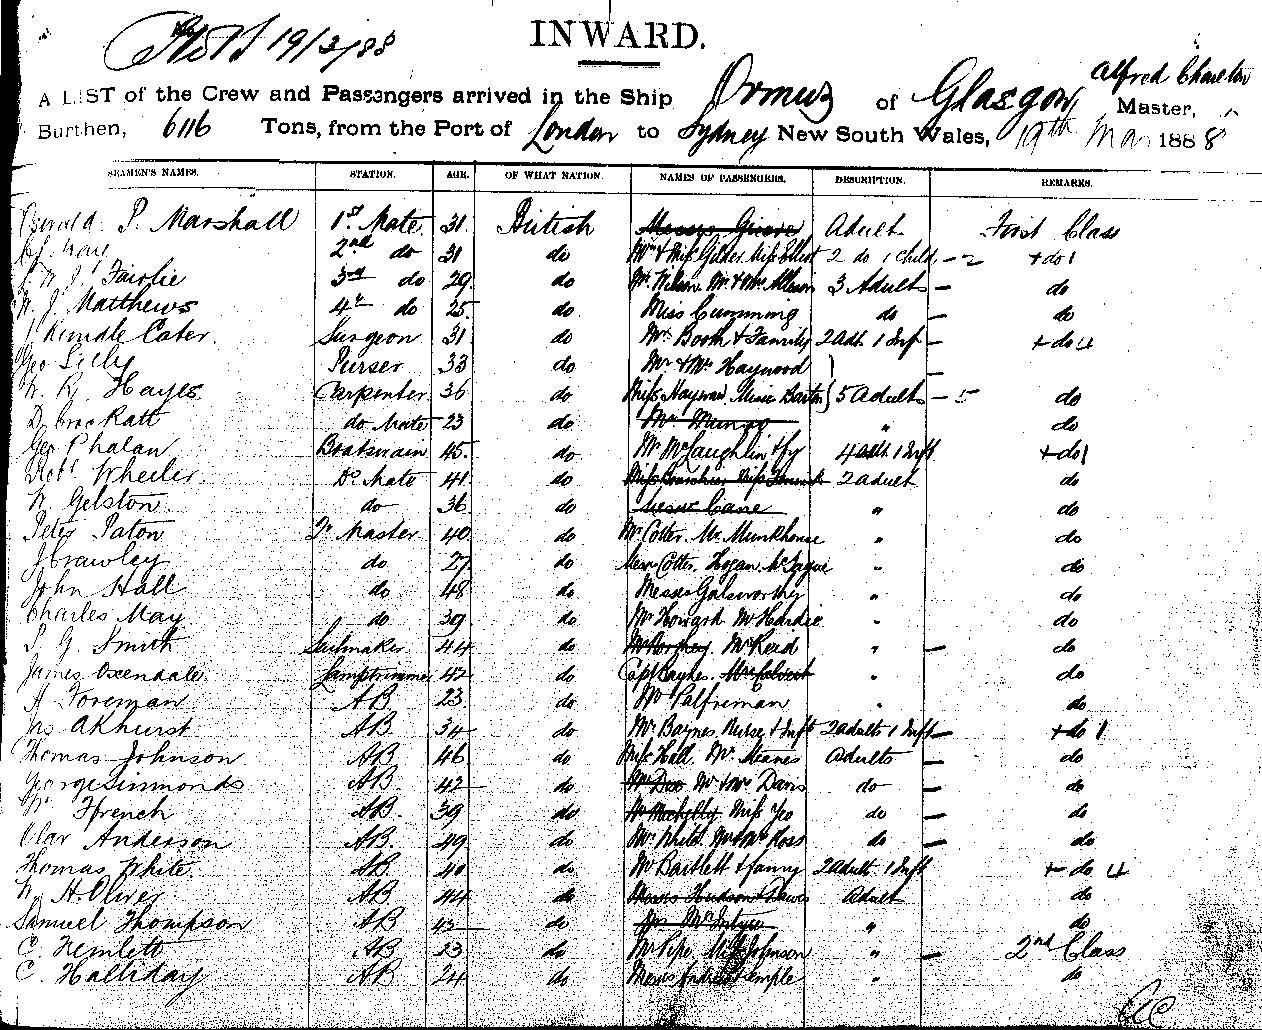 19/3/88
INWARD.
Alfred Charlton
A LIST of the Crew and Passengers arrived in the Ship Ormuz of Glasgow, Master,
Burthen, 6116 Tons, from the Port of London to Sydney New South Wales, 19th Mar 1888
SEAMEN'S NAMES. STATION. AGE. OF WHAT NATION. NAMES OF PASSENGERS. DESCRIPTION. REMARKS.
P. Marshall 1st Mate 31 British Messrs Grieve Adult First Class
2nd do 31 do Mr & Miss Gilder Miss Elliot 2 do 1 child - 2 + do 1
Fairlie 3rd do 29 do Mr. Wilson Mr & Mrs 3 Adults - do
J. Matthews 4th do 25 do Miss Cumming do - do
Cater Surgeon 31 do Mr Booth & Family 2 adt 1 Inf - + do 4
Geo Lilly Purser 33 do Mr & Mrs Haywood -
W. R. Hayes Carpenter 36 do Miss Hayward Barton 5 Adults - 5 do
D do Mate 23 do Mr Munro " do
Geo Phalan Boatswain 45 do Mr McLaughlin & fy 4 adlt 1 Inft + do 1
Robt Wheeler Do Mate 41 do 2 adult do
W Gelston do 36 do Cane " do
Peter Paton Qr Master 40 do Mr Cotter Mr Munkhouse " do
J Crawley do 27 do Cotter. Hogan. McTague " do
John Hall do 48 do Messrs Galsworthy " do
Charles May do 39 do Mr Howard Mr Hardie " do
G. Smith Sailmaker 44 do Mr Reid " - do
James Oxendale Lamptrimmer 42 do Capt Baynes. " do
H Foreman AB 23 do Mr Palfreman " do
Jas Akhurst AB 34 do Mrs Baynes Nurse & Inft 2 adults 1 Inft - + do 1
Thomas Johnson AB 46 do Miss Hall Mr Meanes Adults - do
George Simmonds AB 42 do Mr & Mrs Davis do - do
Ffrench AB 39 do Miss Yeo do - do
Olav Anderson AB 49 do Mr White Mr & Mrs Ross do - do
Thomas White AB 40 do Mr Bartlett & family 2 adult 1 Inft + do 4
W. H. Oliver AB 44 do Messrs Hudson Adult do
Samuel Thompson AB 42 do McIntyre " do
C. Hemlett AB 23 do Mr Pipe Johnson " - 2nd Class
C. Halliday AB 24 do Temple " do